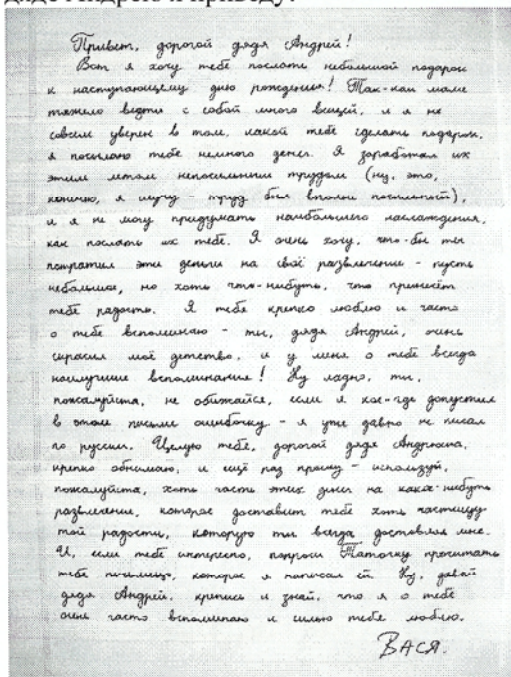 дяде Андрею и приведу:
Привет, дорогой дядя Андрей!
Вот я хочу тебе послать небольшой подарок
к наступающему дню рождения! Так-как маме
тяжело везти с собой много вещей, и я не
совсем уверен в том, какой тебе сделать подарок,
я посылаю тебе немного денег. Я заработал их
этим летом непосильным трудом (ну, это,
конечно, я шучу - труд был вполне посильный),
и я не могу придумать наибольшего наслаждения,
как послать их тебе. Я очень хочу, что-бы ты
потратил эти деньги на своё развлечение - пусть
небольшое, но хоть что-нибудь, что принесёт
тебе радость. Я тебя крепко люблю и часто
о тебе вспоминаю - ты, дядя Андрей, очень
скрасил моё детство, и у меня о тебе всегда
наилучшие вспоминания! Ну ладно, ты,
пожалуйста, не обижайся, если я кое-где допустил
в этом письме ошибочку - я уже давно не писал
по русски. Целую тебя, дорогой дядя Андрюша,
крепко обнимаю, и ещё раз прошу - используй,
пожалуйста, хоть часть этих денег на какое-нибудь
развлечение, которое доставит тебе хоть частицу
той радости, которую ты всегда доставлял мне.
И, если тебе интересно, попроси Таточку прочитать
тебе письмецо, которое я написал ей. Ну, давай
дядя Андрей, крепись и знай, что я о тебе
очень часто вспоминаю и сильно тебя люблю.
ВАСЯ.